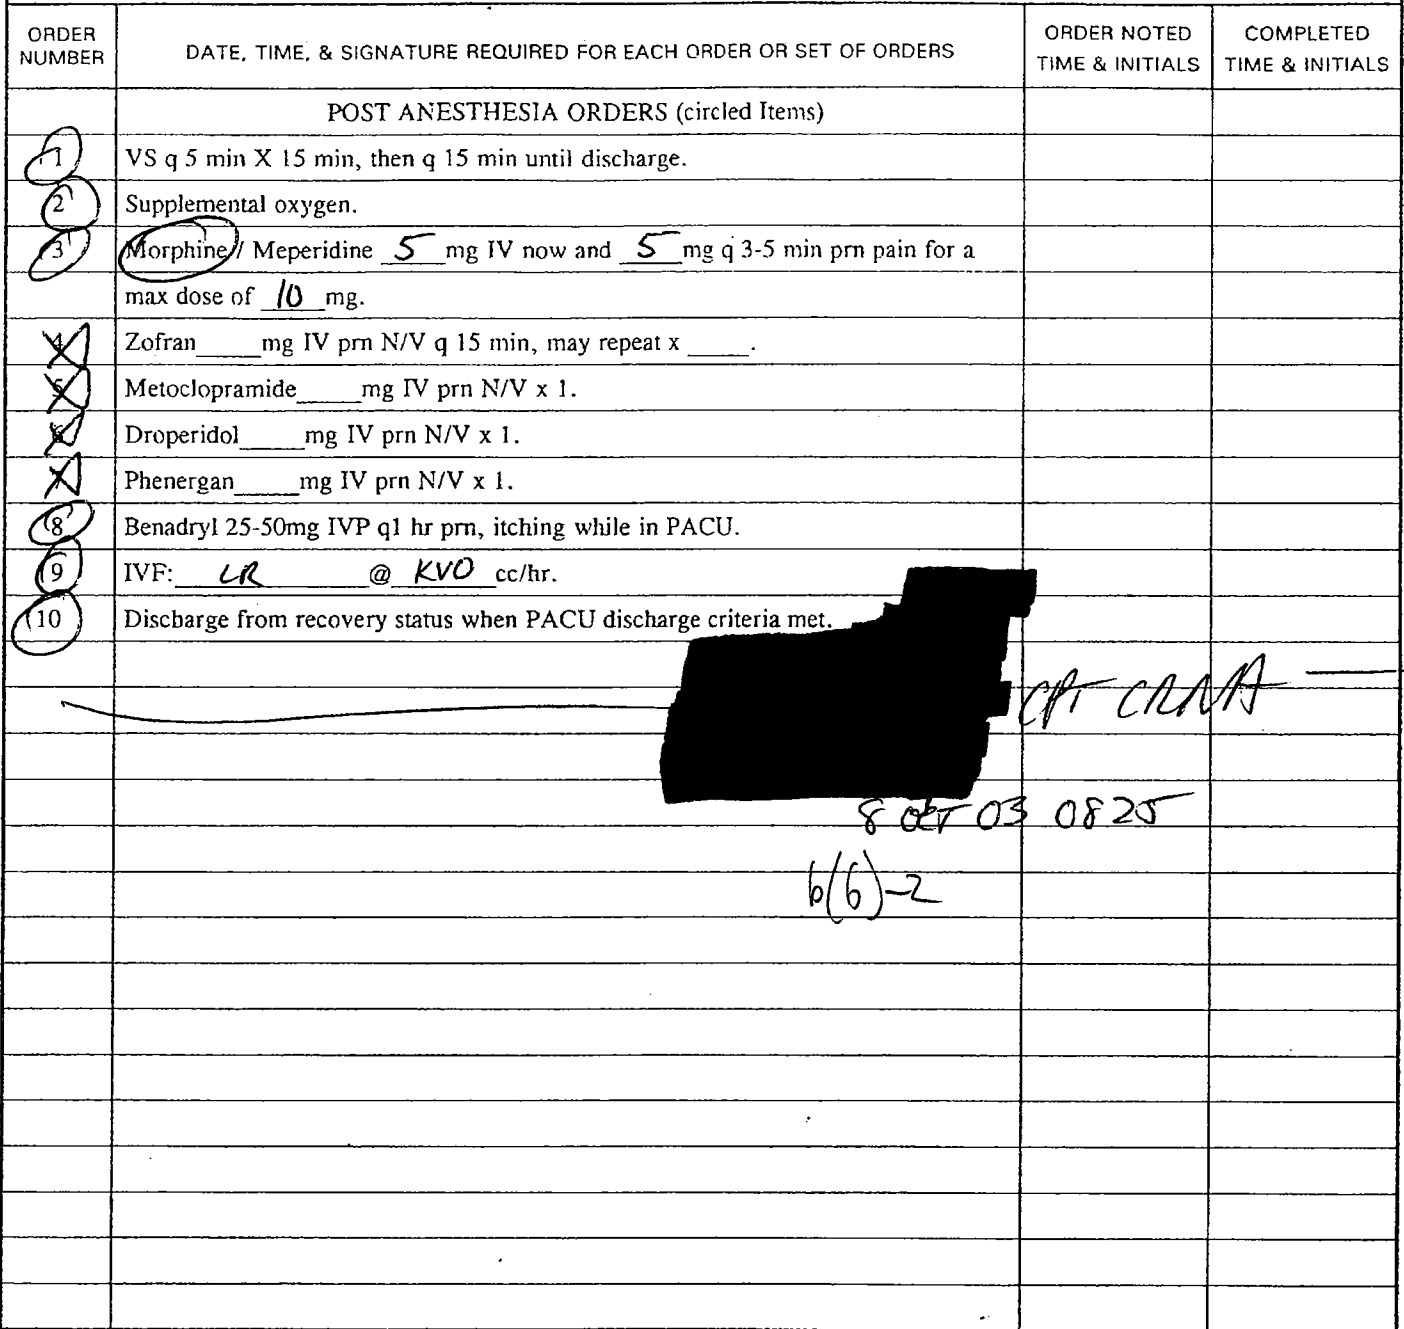 ORDER NUMBER
DATE, TIME, & SIGNATURE REQUIRED FOR EACH ORDER OR SET OF ORDERS
ORDER NOTED TIME & INITIALS
COMPLETED TIME & INITIALS
POST ANESTHESIA ORDERS (circled Items)
1 VS q 5 min X 15 min, then q 15 min until discharge.
2 Supplemental oxygen.
3 Morphine / Meperidine 5 mg IV now and 5 mg q 3-5 min prn pain for a
max dose of 10 mg.
4 Zofran_____mg IV prn N/V q 15 min, may repeat x _____.
5 Metoclopramide_____mg IV prn N/V x 1.
6 Droperidol_____mg IV prn N/V x 1.
7 Phenergan_____mg IV prn N/V x 1.
8 Benadryl 25-50mg IVP q1 hr prn, itching while in PACU.
9 IVF: LR @ KVO cc/hr.
10 Discharge from recovery status when PACU discharge criteria met.
CPT CRNA
8 OCT 03 0825
b(6)-2